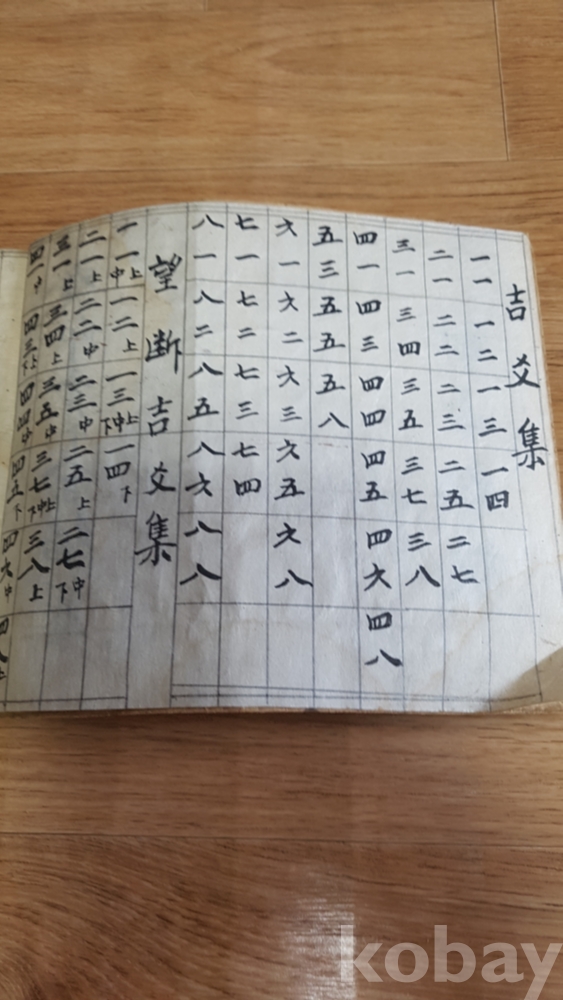 吉爻集
一一 一二 一三 一四
二一 二二 二三 二五 二七
三一 三四 三五 三七 三八
四一 四三 四四 四五 四六 四八
五三 五五 五八
六一 六二 六三 六五 六八
七一 七二 七三 七四
八一 八二 八五 八六 八八
望断吉爻集
一一上中 一二上 一三上中下 一四下
二一上 二二中 二三中 二五上 二七中下
三一上 三四上 三五中 三七上中下 三八上
四一中 四三上下 四四中 四五下 四六中 四八
kobay